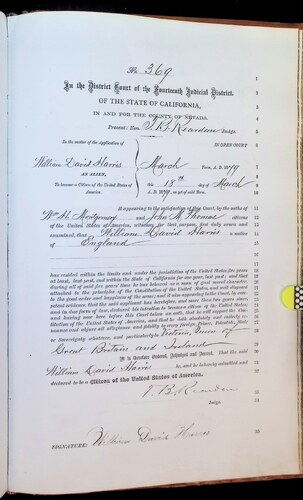 No. 369
In the District Court of the Fourteenth Judicial District,
OF THE STATE OF CALIFORNIA,
IN AND FOR THE COUNTY OF NEVADA.
Present: Hon. T. B. Reardan Judge.
In the matter of the Application of
IN OPEN COURT
William David Harris
AN ALIEN,
March Term, A. D. 1879
To become a Citizen of the United States of America.
this 18th day of March
A. D. 1879, as yet of said Term.
It appearing to the satisfaction of this Court, by the oaths of
Wm H. Montgomery and John M. Thomas citizens
of the United States of America, witnesses for that purpose, first duly sworn and
examined, that William David Harris a native
of England
has resided within the limits and under the jurisdiction of the United States five years
at least, last past, and within the State of California for one year, last past; and that
during all of said five years' time he has behaved as a man of good moral character,
attached to the principles of the Constitution of the United States, and well disposed to
the good order and happiness of the same; and it also appearing to the Court, by com-
petent evidence, that the said applicant has heretofore, and more than two years since,
and in due form of law, declared his intention to become a citizen of the United States,
and having now here before this Court taken an oath, that he will support the Con-
stitution of the United States of America, and that he doth absolutely and entirely re-
nounce and abjure all allegiance and fidelity to every foreign Prince, Potentate, State
or Sovereignty whatever, and particularly to Victoria, Queen of
Great Britain and Ireland
It is therefore Ordered, Adjudged and Decreed, That the said
William David Harris be, and he is hereby admitted and
declared to be a Citizen of the United States of America.
T. B. Reardan
Judge.
SIGNATURE: William Davis Harris